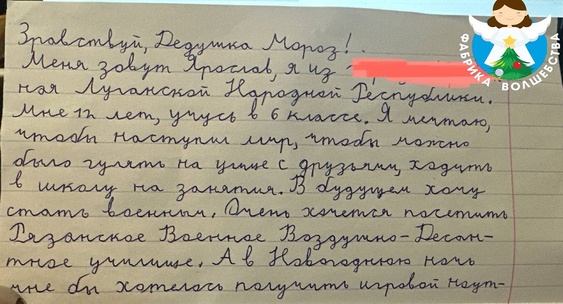 ФАБРИКА ВОЛШЕБСТВА
Здравствуй, Дедушка Мороз!
Меня зовут Ярослав, я из
ная Луганской Народной Республики.
Мне 12 лет, учусь в 6 классе. Я мечтаю,
чтобы наступил мир, чтобы можно
было гулять на улице с друзьями, ходить
в школу на занятия. В будущем хочу
стать военным. Очень хочется посетить
Рязанское Военное Воздушно-Десан-
тное училище. А в Новогоднюю ночь
мне бы хотелось получить игровой ноут-